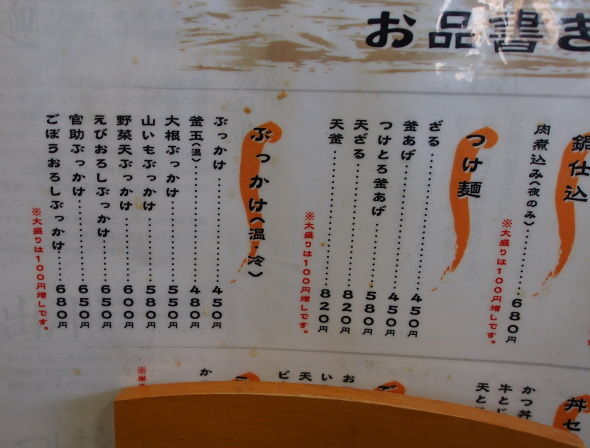 お品書き
鍋仕込
肉煮込み(夜のみ)……680円
※大盛りは100円増しです。
つけ麺
ざる……450円
釜あげ……450円
つけとろ釜あげ……580円
天ざる……820円
天釜……820円
※大盛りは100円増しです。
ぶっかけ(温・冷)
ぶっかけ……450円
釜玉(温)……480円
大根ぶっかけ……550円
山いもぶっかけ……580円
野菜天ぶっかけ……600円
えびおろしぶっかけ……650円
官助ぶっかけ……650円
ごぼうおろしぶっかけ……680円
※大盛りは100円増しです。
丼セ
かつ丼
牛とじ
天と
お
い
天
ビ
か
※単